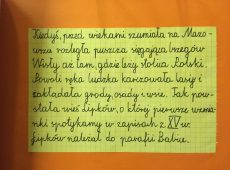 Kiedyś, przed wiekami szumiała na Mazo-
wszu rozległa puszcza sięgająca brzegów
Wisły aż tam, gdzie leży stolica Polski.
Powoli ręka ludzka karczowała lasy i
zakładała grody, osady i wsie. Tak pow-
stała wieś Lipków, o której pierwsze wzmian-
ki spotykamy w zapisach z XV w.
Lipków należał do parafii Babice.